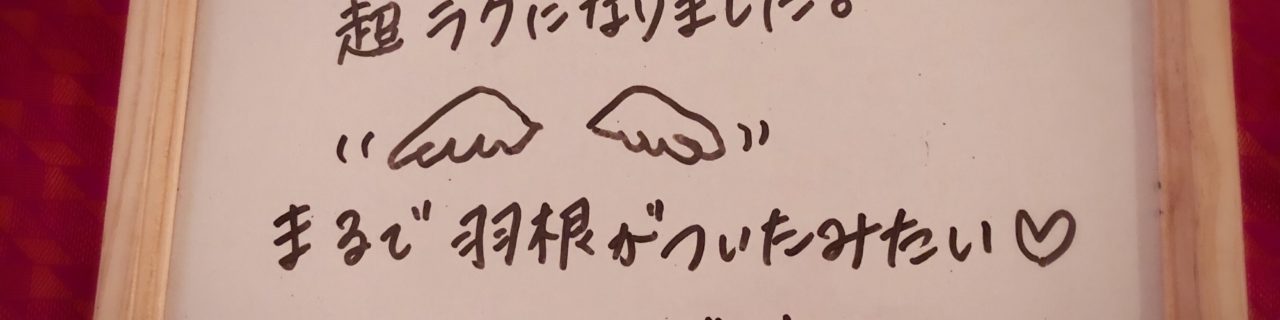 超ラクになりました。
まるで羽根がついたみたい♡